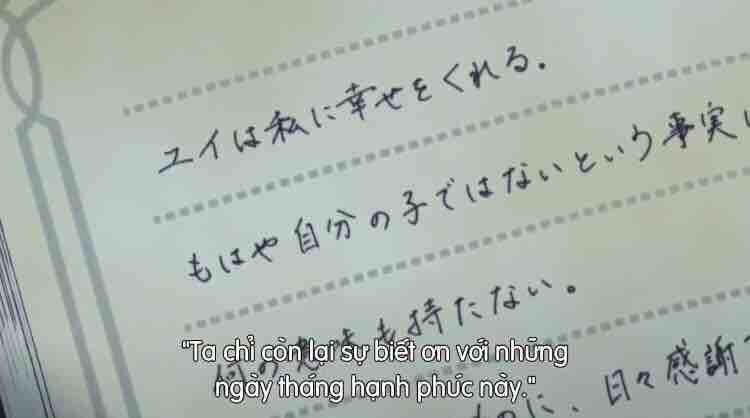 ユイは私に幸せをくれる。
もはや自分の子ではないという事実
何の意味も持たない。
に、日々感謝
"Ta chỉ còn lại sự biết ơn với những
ngày tháng hạnh phúc này."